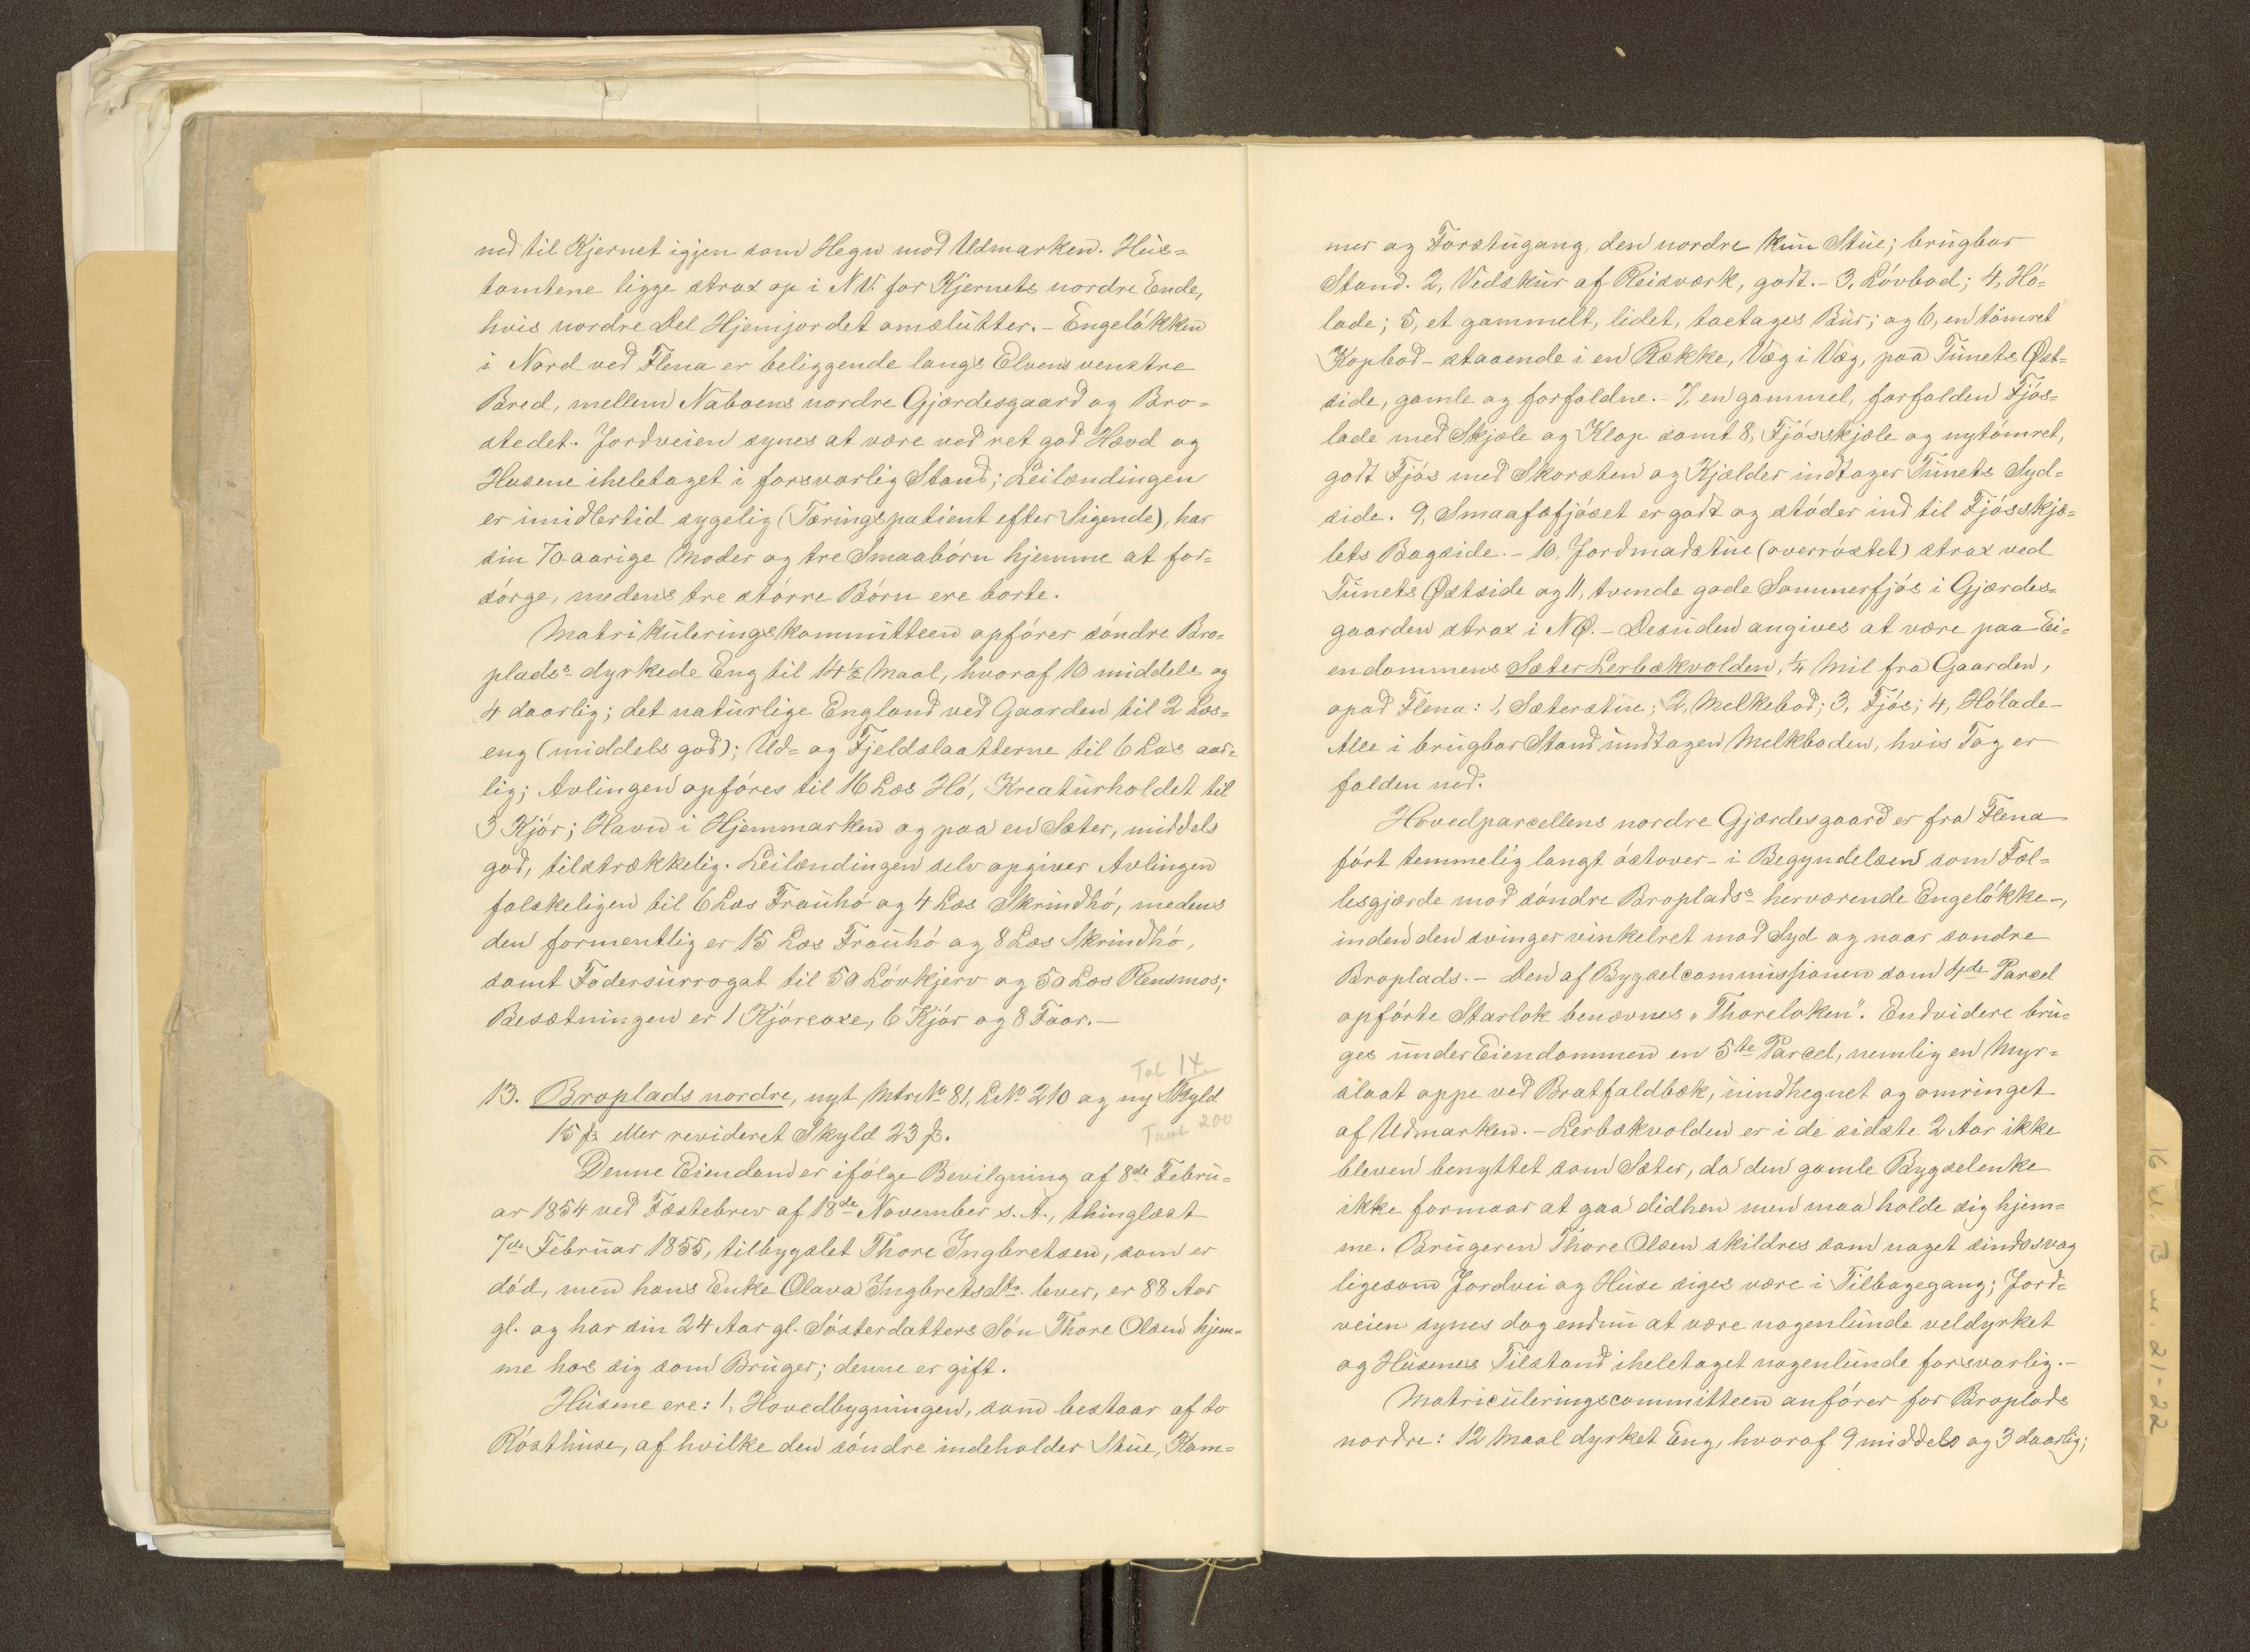 ned til Kjernet igjen som Hegn mod Udmarken. Hus=
tomtene ligge strax op i N.V. for Kjernets nordre Ende,
hvis nordre Del Hjemjordet omslutter. – Engeløkken
i Nord ved Flena er beliggende langs Elvens venstre
Bred, mellem Naboens nordre Gjærdesgaard og Bro-
stedet. Jordveien synes at være ved ret god Hævd og
Husene iheletaget i forsvarlig Stand; Leilændingen
er imidlertid sygelig (Tæringspatient efter Sigende), har
sin 70-aarige Moder og tre Smaabørn hjemme at for=
sørge, medens tre større Børn ere borte.
Matrikuleringskommitteen opfører søndre Bro-
plads's dyrkede Eng til 14½ Maal, hvoraf 10 middels og
4 daarlig; det naturlige England ved Gaarden til 2 Læs=
eng (middels god); Ud= og Fjeldslaatterne til 6 Læs aar=
lig; Avlingen opføres til 16 Læs Hø, Kreaturholdet til
3 Kjør; Havn i Hjemmarken og paa en Sæter, middels
god, tilstrækkelig. Leilændingen selv opgiver Avlingen
falskeligen til 6 Læs Frauhø og 4 Læs Skrindhø, medens
den formentlig er 15 Læs Frauhø og 8 Læs Skrindhø,
samt Fodersurrogat til 50 Løvkjerv og 50 Læs Rensmos;
Besætningen er 1 Kjøreoxe, 6 Kjør og 8 Faar. –
Tal 14
13. Broplads nordre, nyt Mtr.No 81, L.No 210 og ny Skyld
15 ß eller revideret Skyld 23 ß.
Taxt 200
Denne Eiendom er ifølge Bevilgning af 8de Febru=
ar 1854 ved Fæstebrev af 18de November s. A., thinglæst
7de Februar 1855, tilbygslet Thore Ingbretsen, som er
død, men hans Enke Olava Ingbretsdtr. lever, er 88 Aar
gl. og har sin 24 Aar gl. Søsterdatters Søn Thore Olsen hjem=
me hos sig som Bruger; denne er gift.
Husene ere: 1, Hovedbygningen, som bestaar af to
Røsthuse, af hvilke den søndre indeholder Stue, Kam=
mer og Forstugang, den nordre kun Stue; brugbar
Stand. 2, Vedskur af Reisværk, godt. – 3, Løvbod; 4, Hø=
lade; 5, et gammelt, lidet, toetages Bur; og 6, en tømret
Kopbod – staaende i en Række, Væg i Væg, paa Tunets Øst=
side, gamle og forfaldne. – 7, en gammel, forfalden Fjøs=
lade med Skjæle og Klop samt 8, Fjøsskjæle og nytømret,
godt Fjøs med Skorsten og Kjælder indtager Tunets Syd=
side. 9, Smaafæfjøset er godt og støder ind til Fjøsskjæ=
lets Bagside. – 10, Jordmadstue (overrøstet) strax ved
Tunets Østside og 11, tvende gode Sommerfjøs i Gjærdes=
gaarden strax i NØ. – Desuden angives at være paa Ei=
endommens Sæter Lerbækvolden, ¼ Mil fra Gaarden,
opad Flena: 1, Sæterstue; 2, Melkebod; 3, Fjøs; 4, Hølade –
Alle i brugbar Stand undtagen Melkboden, hvis Tag er
falden ned.
Hovedparcellens nordre Gjærdesgaard er fra Flena
ført temmelig langt østover – i Begyndelsen som Fæl=
lesgjærde mod søndre Broplads's herværende Engeløkke –,
inden den svinger vinkelret mod Syd og naar søndre
Broplads. – Den af Bygselcommissionen som 4de Parcel
opførte Starlok benævnes „Thoreloken". Endvidere bru=
ges under Eiendommen en 5te Parcel, nemlig en Myr=
slaat oppe ved Bratfaldbæk, uindhegnet og omringet
af Udmarken. – Lerbækvolden er i de sidste 2 Aar ikke
bleven benyttet som Sæter, da den gamle Bygselenke
ikke formaar at gaa didhen men maa holde sig hjem=
me. Brugeren Thore Olsen skildres som noget sindssvag
ligesom Jordvei og Huse siges være i Tilbagegang; Jord=
veien synes dog endnu at være nogenlunde veldyrket
og Husenes Tilstand iheletaget nogenlunde forsvarlig. –
Matriculeringscommitteen anfører for Broplads
nordre: 12 Maal dyrket Eng, hvoraf 9 middels og 3 daarlig;
16 kl. B nr. 21-22